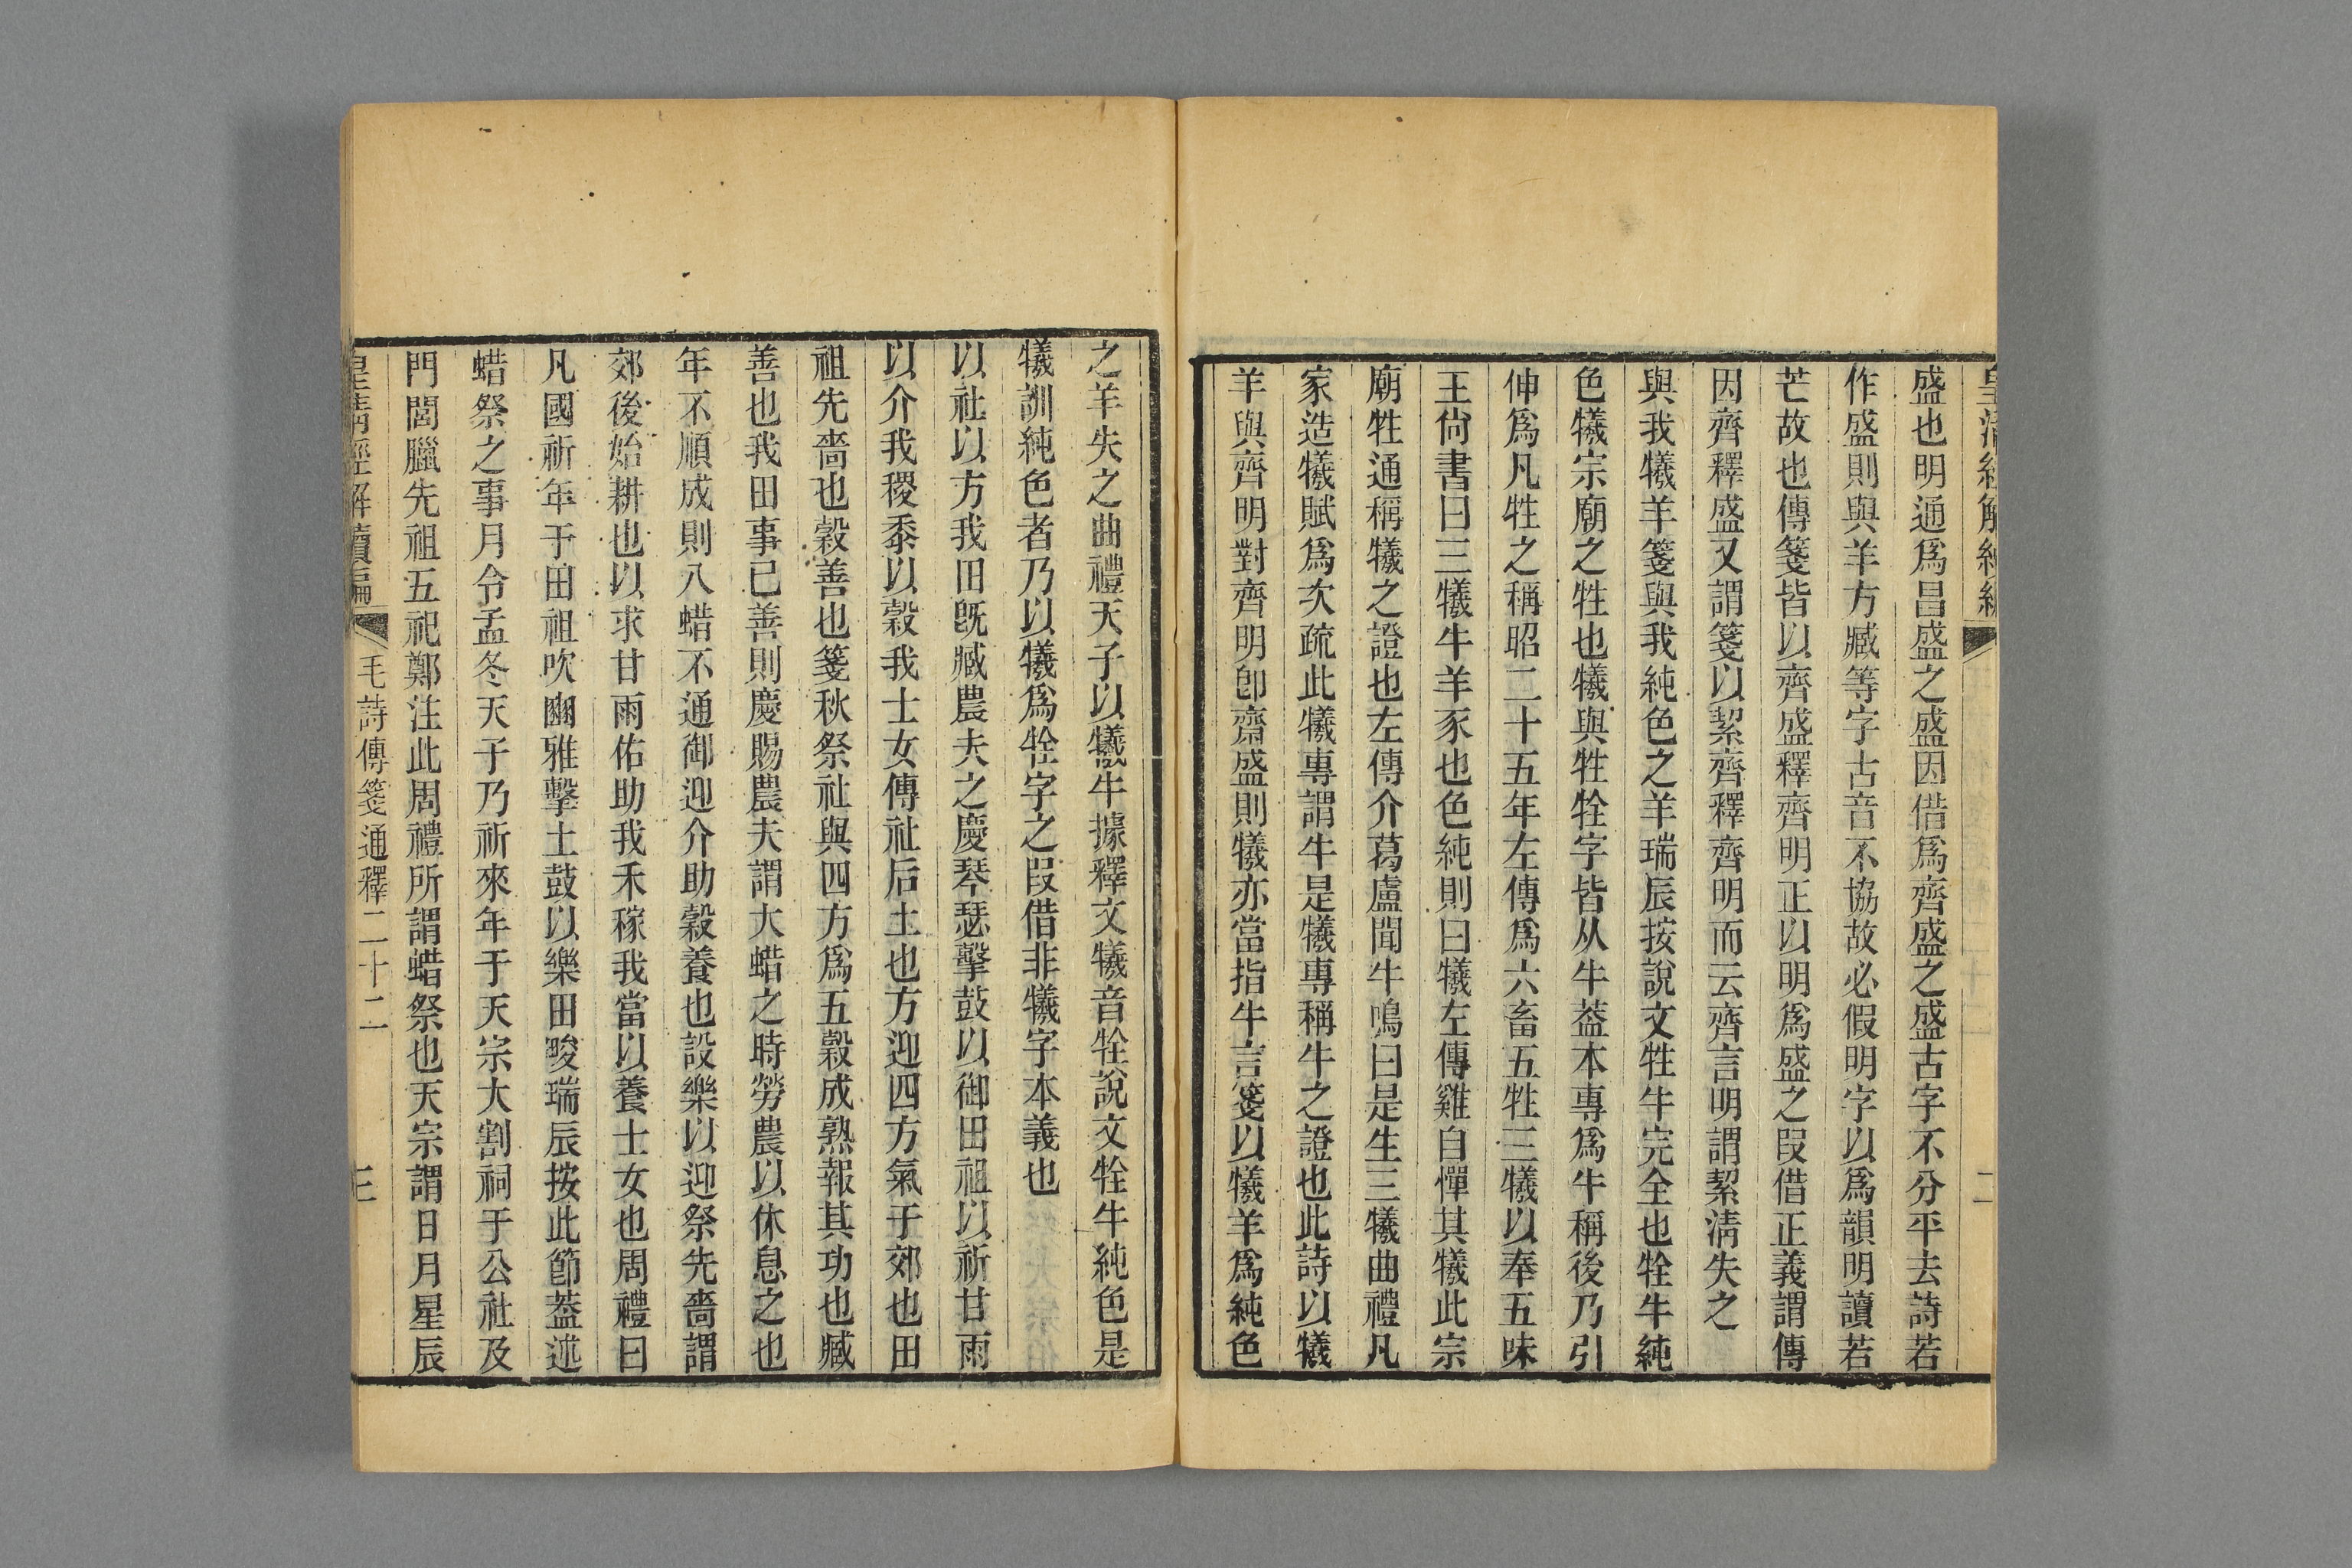 皇清經解續編
二
盛也明通爲昌盛之盛因借爲齊盛之盛古字不分平去詩若
作盛則與羊方臧等字古音不協故必假明字以爲韻明讀若
芒故也傳箋皆以齊盛釋齊明正以明爲盛之叚借正義謂傳
因齊釋盛又謂箋以絜齊釋齊明而云齊言明謂絜清失之
與我犧羊箋與我純色之羊瑞辰按說文牲牛完全也牷牛純
色犧宗廟之牲也犧與牲牷字皆从牛葢本專爲牛稱後乃引
伸爲凡牲之稱昭二十五年左傳爲六畜五牲三犧以奉五味
王尙書曰三犧牛羊豕也色純則曰犧左傳雞自憚其犧此宗
廟牲通稱犧之證也左傳介葛盧聞牛鳴曰是生三犧曲禮凡
家造犧賦爲次疏此犧專謂牛是犧專稱牛之證也此詩以犧
羊與齊明對齊明卽齋盛則犧亦當指牛言箋以犧羊爲純色
之羊失之曲禮天子以犧牛據釋文犧音牷說文牷牛純色是
犧訓純色者乃以犧爲牷字之叚借非犧字本義也
以社以方我田旣臧農夫之慶琴瑟擊鼓以御田祖以祈甘雨
以介我稷黍以穀我士女傳社后土也方迎四方氣于郊也田
祖先嗇也穀善也箋秋祭社與四方爲五穀成熟報其功也臧
善也我田事已善則慶賜農夫謂大蜡之時勞農以休息之也
年不順成則八蜡不通御迎介助穀養也設樂以迎祭先嗇謂
郊後始耕也以求甘雨佑助我禾稼我當以養士女也周禮曰
凡國祈年于田祖吹豳雅擊土鼓以樂田畯瑞辰按此節葢述
蜡祭之事月令孟冬天子乃祈來年于天宗大割祠于公社及
門閭臘先祖五祀鄭注此周禮所謂蜡祭也天宗謂日月星辰
皇淸經解續編
毛詩傳箋通釋二十二
三